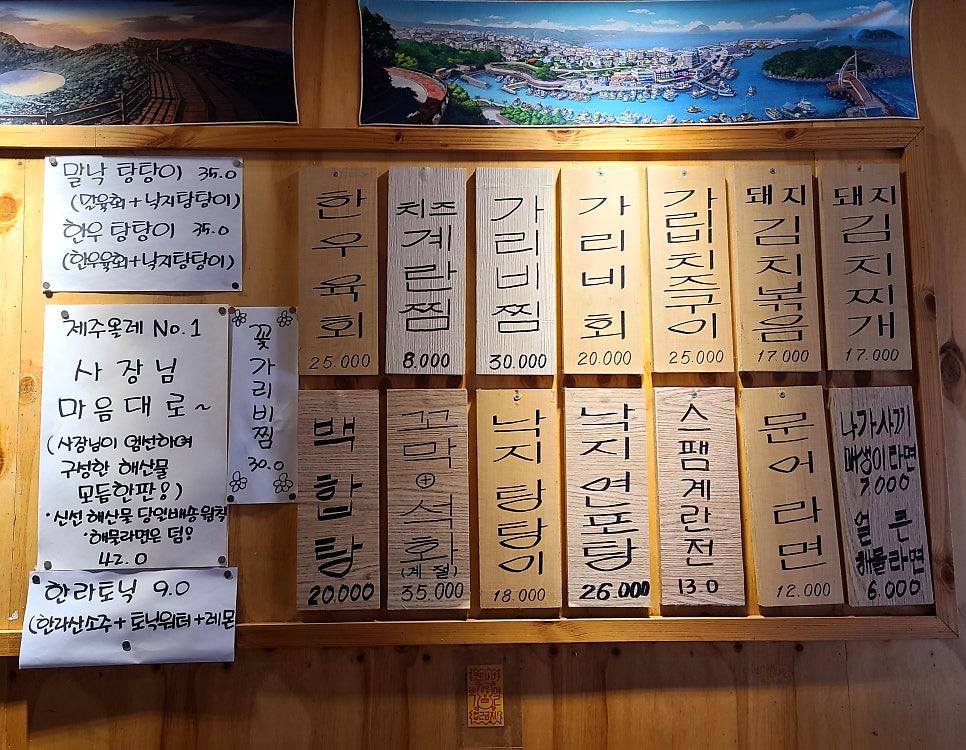 말낙 탕탕이 35.0
(말육회+낙지탕탕이)
한우 탕탕이 35.0
(한우육회+낙지탕탕이)
제주올레 No.1
사장님
마음대로~
(사장님이 엄선하여
구성한 해산물
모듬한판!)
·신선 해산물 당일배송 원칙
·해물라면은 덤!
42.0
한라토닉 9.0
(한라산소주+토닉워터+레몬
꽃가리비찜
30.0
한우육회
25.000
치즈
계란찜
8.000
가리비찜
30.000
가리비회
20.000
가리비치즈구이
25.000
돼지
김치볶음
17.000
돼지
김치찌개
17.000
백합탕
20.000
꼬막+석화
(계절)
35.000
낙지탕탕이
18.000
낙지연포탕
26.000
스팸계란전
13.0
문어라면
12.000
나가사끼
매생이라면
7.000
얼큰
해물라면
6.000